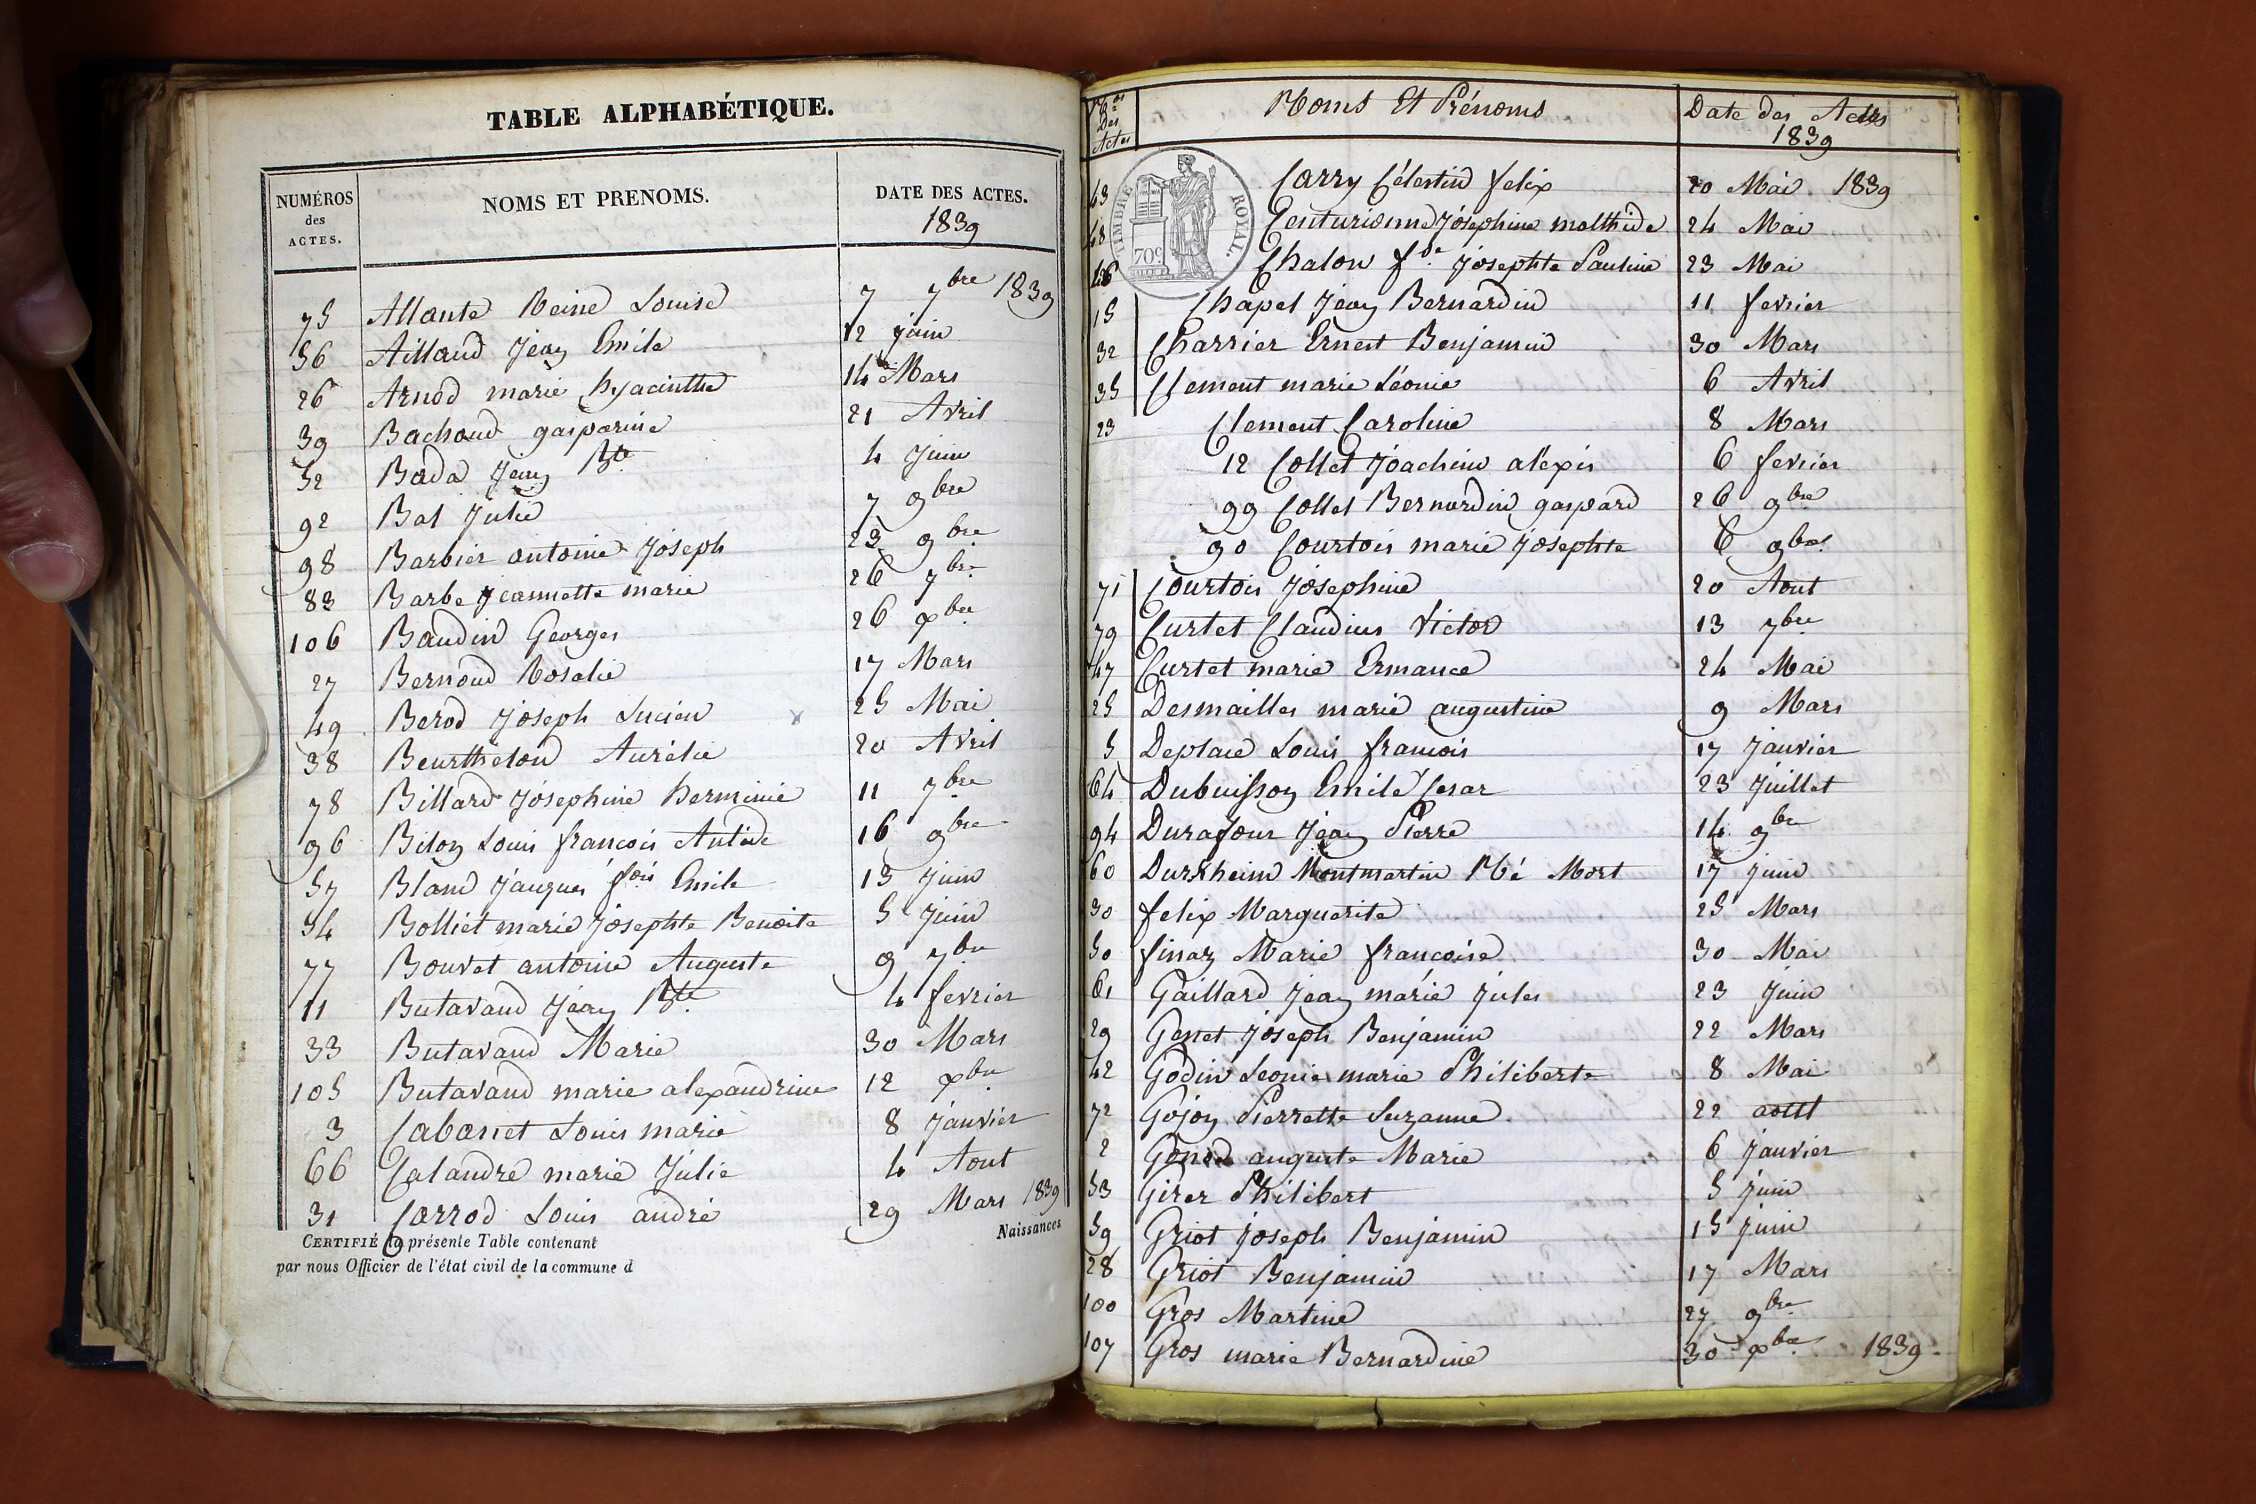 TABLE ALPHABÉTIQUE.
NUMÉROS des ACTES. NOMS ET PRENOMS. DATE DES ACTES.
1839
75 Allante Reine Louise 7 7bre 1839
56 Aillaud Jean Emile 12 juin
26 Arnod marie hyacinthe 14 Mars
39 Bachoud gasparine 21 Avril
52 Bada Jean Bte 4 Juin
92 Bal Julie 7 9bre
98 Barbier antoine Joseph 23 9bre
83 Barbe Jeannette marie 26 7bre
106 Baudin Georges 26 xbre
27 Bernoud Rosalie 17 Mars
49 Berod Joseph Lucien 25 Mai
38 Beurthelon Aurélie 20 Avril
78 Billard Joséphine herminie 11 7bre
96 Biloz Louis françois 16 9bre
57 Bland Jacques fois Emile 13 Juin
54 Bolliet marie Josephte Benoite 5 Juin
77 Bouvet antoine Auguste 9 7bre
11 Butavand Jean Bte 4 fevrier
33 Butavand Marie 30 Mars
105 Butavand marie alexandrine 12 xbre
3 Cabanet Louis marie 8 Janvier
66 Calandre marie Julie 4 Aout
31 Carrod Louis andré 29 Mars 1839
CERTIFIÉ la présente Table contenant Naissances
par nous Officier de l'état civil de la commune d
Nos Des Actes Noms Et Prénoms Date des Actes
1839
TIMBRE ROYAL.
70c
43 Carry Célestin felix 20 Mai 1839
48 Centurionne Joséphine malthide 24 Mai
46 Chalon fde Josephte Pauline 23 Mai
15 Chapel Jean Bernardin 11 fevrier
32 Charrier Ernest Benjamin 30 Mars
35 Clement marie Léonie 6 Avril
23 Clement Caroline 8 Mars
12 Collet Joachim alexis 6 fevrier
99 Collet Bernardin gaspard 26 9bre
90 Courtois marie Josephte 6 9bre
71 Courtois Joséphine 20 Aout
79 Curtet Claudius Victor 13 7bre
47 Curtet marie Ermance 24 Mai
25 Desmailles marie augustine 9 Mars
5 Deplace Louis francois 17 Janvier
64 Dubuisson Emile Cesar 23 Juillet
94 Durafour Jean Pierre 14 9bre
60 Durkheim Montmartin Né Mort 17 juin
30 felix Marguerite 25 Mars
50 finaz Marie francoise 30 Mai
61 Gaillard Jean marie Jules 23 Juin
29 Genet Joseph Benjamin 22 Mars
42 Godin Leonie marie Philiberte 8 Mai
72 Gojoz Pierrette Suzanne 22 aout
2 auguste Marie 6 Janvier
53 Girer Philibert 5 Juin
59 Griot Joseph Benjamin 15 Juin
28 Griot Benjamin 17 Mars
100 Gros Martine 27 9bre
107 Gros marie Bernardine 30 xbre 1839